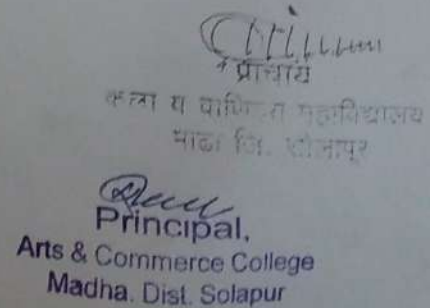 प्राचार्य
कला व वाणिज्य महाविद्यालय
माढा जि. सोलापूर
Principal,
Arts & Commerce College
Madha. Dist. Solapur